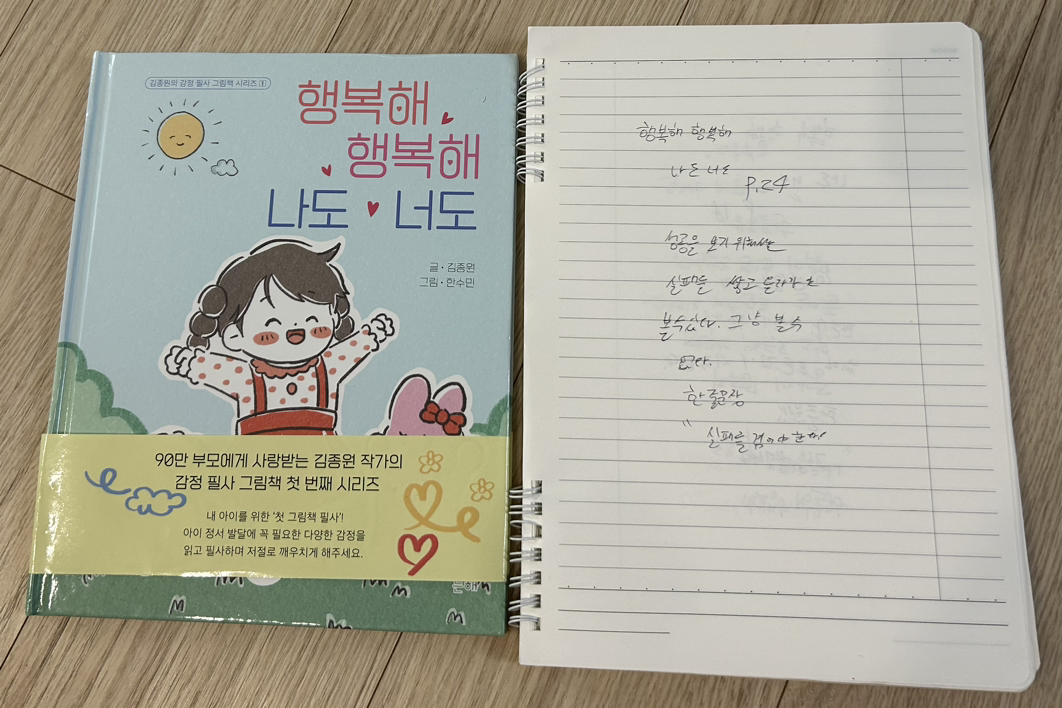 김종원의 감정 필사 그림책 시리즈 1
행복해
행복해
나도 너도
글·김종원
그림·한수민
90만 부모에게 사랑받는 김종원 작가의
감정 필사 그림책 첫 번째 시리즈
내 아이를 위한 '첫 그림책 필사'!
아이 정서 발달에 꼭 필요한 다양한 감정을
읽고 필사하며 저절로 깨우치게 해주세요.
행복해 행복해
나도 너도
P.24
성공을 보기 위해서는
실패를 쌓고 올라가야
볼 수 있다. 그냥 볼 수
없다.
한 줄 문장
" 실패를 겪어야 한다